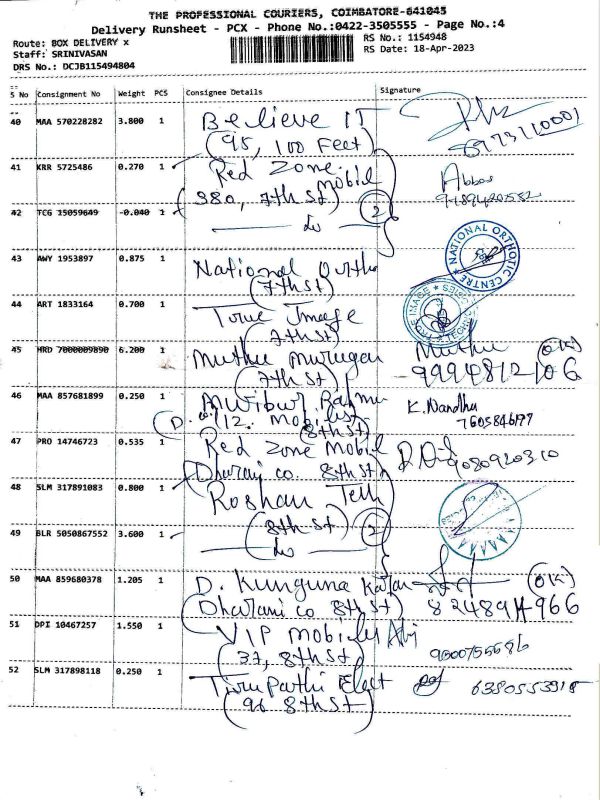 THE PROFESSIONAL COURIERS, COIMBATORE-641045
Delivery Runsheet - PCX - Phone No.:0422-3505555 - Page No.:4
Route: BOX DELIVERY x
RS No.: 1154948
Staff: SRINIVASAN
RS Date: 18-Apr-2023
DRS No.: DCJB115494804
S No Consignment No Weight PCS Consignee Details Signature
40 MAA 570228282 3.800 1 Believe IT
(95, 100 Feet)
41 KRR 5725486 0.270 1 Red Zone Mobil
(380, 7th St)
Abbas
42 TCG 15059649 -0.040 1 2
43 AWY 1953897 0.875 1 National Ortho
(7th St)
NATIONAL ORTHOTIC CENTRE
44 ART 1833164 0.700 1 True Image
(7th St)
45 MRD 7000009890 6.200 1 Muthu Murugan
(7th St)
Muthu OK
9994812106
46 MAA 857681899 0.250 1 Mujibur
8th St)
K. Nandha
7605846177
47 PRO 14746723 0.535 1 Red Zone Mobil
Dharani co. 8th St
9080920310
48 SLM 317891083 0.800 1 Roshan Tele
(8th St)
49 BLR 5050867552 3.600 1 2
50 MAA 859680378 1.205 1 D. Kunguna
(Dharani co 8th St)
OK
51 DPI 10467257 1.550 1 VIP Mobiles
(37, 8th St)
52 SLM 317898118 0.250 1 Tirupathi Elect
(96 8th St)